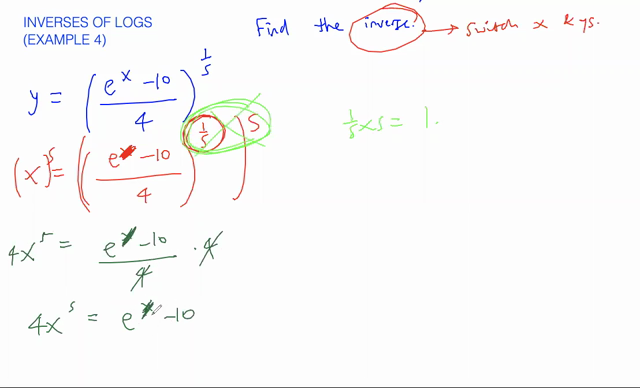 INVERSES OF LOGS
(EXAMPLE 4)
Find the inverse. → switch x & ys.
y = ((e^x - 10)/4)^(1/5)
1/5 x 5 = 1.
(x)^5 = (((e^y - 10)/4)^(1/5))^5
4x^5 = (e^y - 10)/4 · 4
4x^5 = e^y - 10